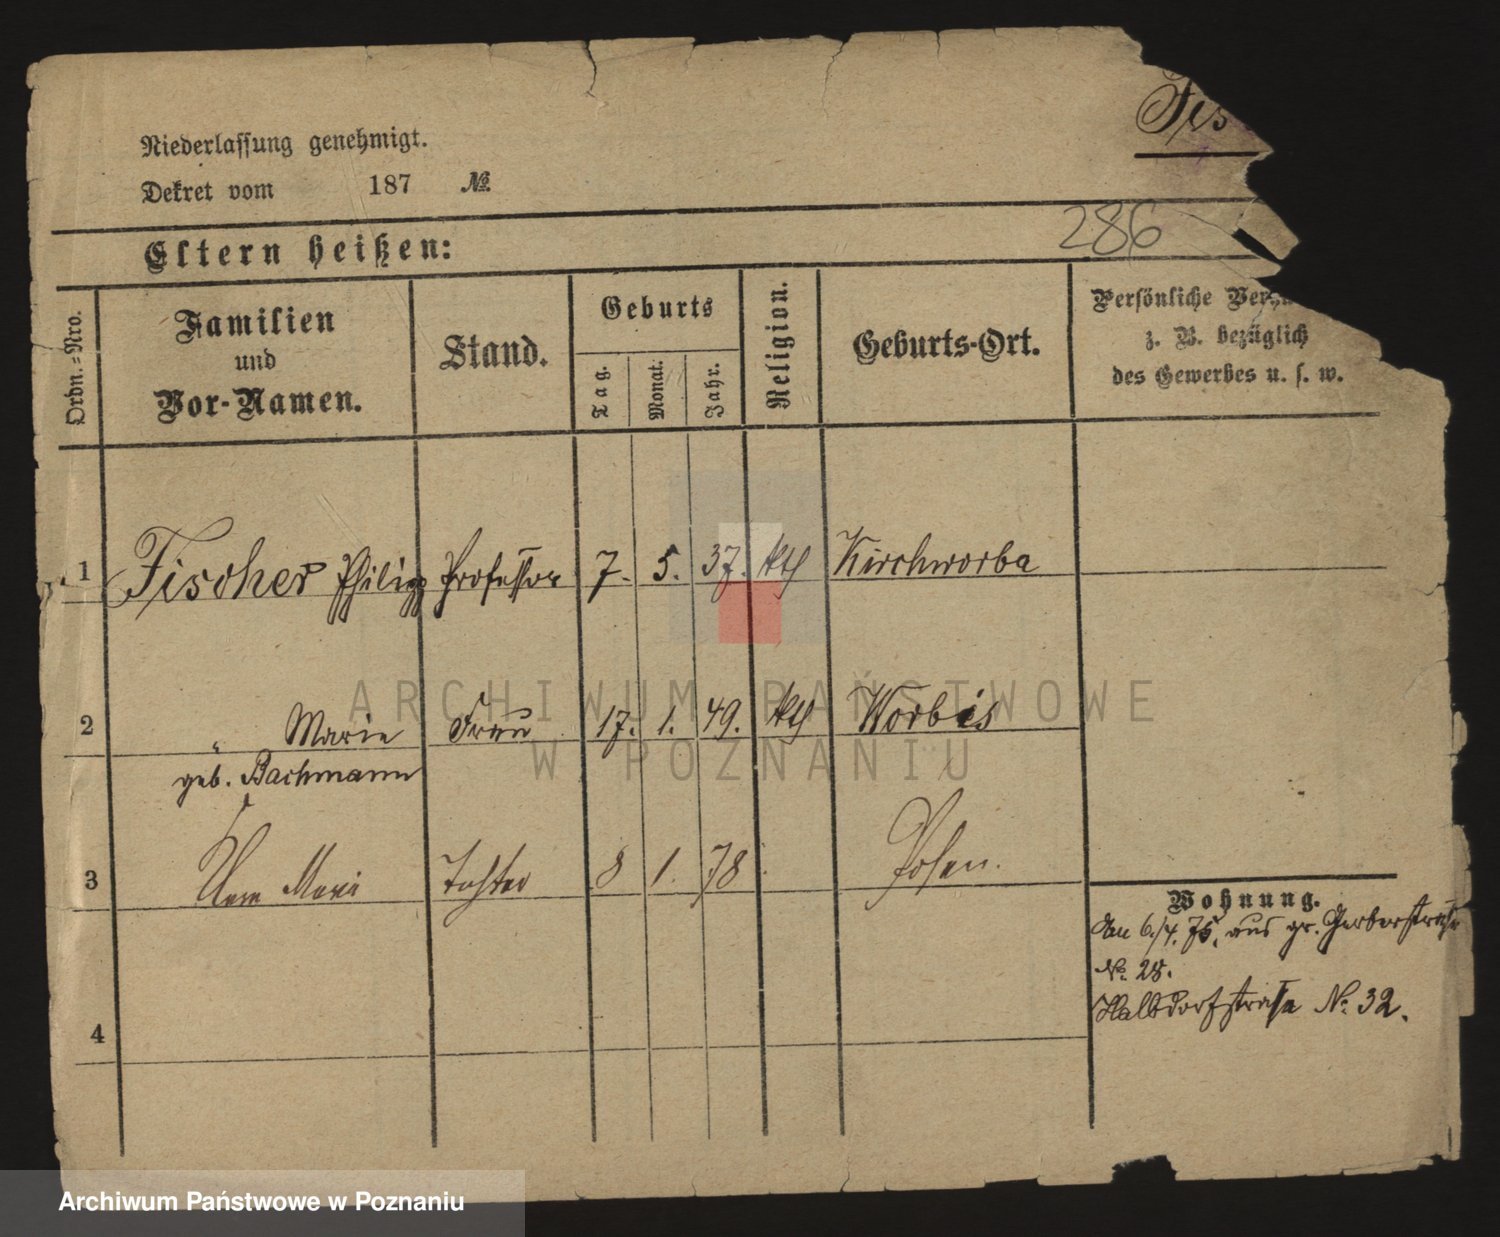 Fis
Niederlassung genehmigt.
Dekret vom 187 №
286
Eltern heißen:
Ordn.-Nro.
Familien
und
Vor-Namen.
Stand.
Geburts
Tag.
Monat.
Jahr.
Religion.
Geburts-Ort.
Persönliche
z. B. bezüglich
des Gewerbes u. s. w.
1 Fischer Philipp Professor 7. 5. 37. kth Kirchworba
2 " Marie Frau 17. 1. 49. kth Worbis
geb. Bachmann
3 Tochter 8 1. 78 Posen.
4
Wohnung.
Am 6./4. 75. aus gr. Gerberstraße
No. 28.
Halbdorfstraße No. 32.
ARCHIWUM PAŃSTWOWE
W POZNANIU
Archiwum Państwowe w Poznaniu